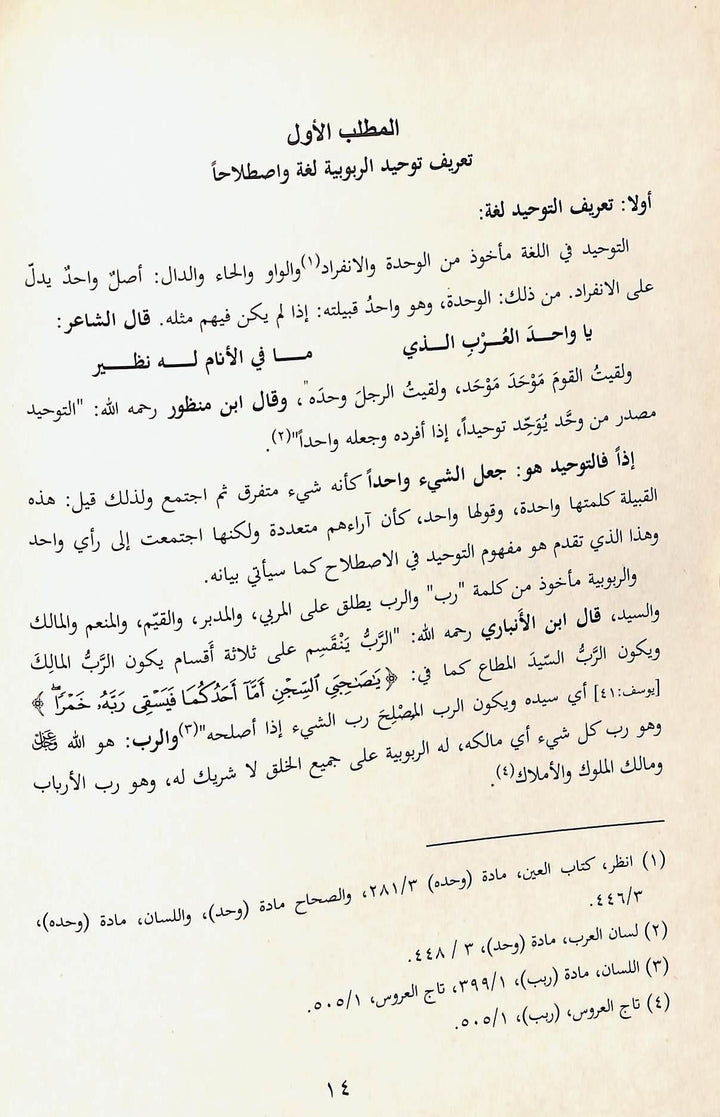 المطلب الأول
تعريف توحيد الربوبية لغة واصطلاحاً
أولا: تعريف التوحيد لغة:
التوحيد في اللغة مأخوذ من الوحدة والانفراد(١)والواو والحاء والدال: أصلٌ واحدٌ يدلّ
على الانفراد. من ذلك: الوحدة، وهو واحدُ قبيلته: إذا لم يكن فيهم مثله. قال الشاعر:
يا واحـد العُـرْبِ الـذي مـا في الأنام لـه نظـير
ولقيتُ القومَ مَوْحَدَ مَوْحَد، ولقيتُ الرجلَ وحدَه"، وقال ابن منظور رحمه الله: "التوحيد
مصدر من وحَّد يُوَحِّد توحيداً، إذا أفرده وجعله واحداً"(٢).
إذاً فالتوحيد هو: جعل الشيء واحداً كأنه شيء متفرق ثم اجتمع ولذلك قيل: هذه
القبيلة كلمتها واحدة، وقولها واحد، كأن آراءهم متعددة ولكنها اجتمعت إلى رأي واحد
وهذا الذي تقدم هو مفهوم التوحيد في الاصطلاح كما سيأتي بيانه.
والربوبية مأخوذ من كلمة "رب" والرب يطلق على المربي، والمدبر، والقيّم، والمنعم والمالك
والسيد، قال ابن الأنباري رحمه الله: "الرَّبُّ يَنْقَسِم على ثلاثة أَقسام يكون الرَّبُّ المالِكَ
ويكون الرَّبُّ السّيدَ المطاع كما في: ﴿ يَٰصَٰحِبَيِ ٱلسِّجْنِ أَمَّآ أَحَدُكُمَا فَيَسْقِى رَبَّهُۥ خَمْرًا ﴾
[يوسف:٤١] أي سيده ويكون الرب المصْلِحَ رب الشيء إذا أصلحه"(٣)والرب: هو الله ﷻ
وهو رب كل شيء أي مالكه، له الربوبية على جميع الخلق لا شريك له، وهو رب الأرباب
ومالك الملوك والأملاك(٤).
(١) انظر، كتاب العين، مادة (وحده) ٢٨١/٣، والصحاح مادة (وحد)، واللسان، مادة (وحده)،
٤٤٦/٣.
(٢) لسان العرب، مادة (وحد)، ٣ / ٤٤٨.
(٣) اللسان، مادة (ربب)، ٣٩٩/١، تاج العروس، ٥٠٥/١.
(٤) تاج العروس، (ربب)، ٥٠٥/١.
١٤